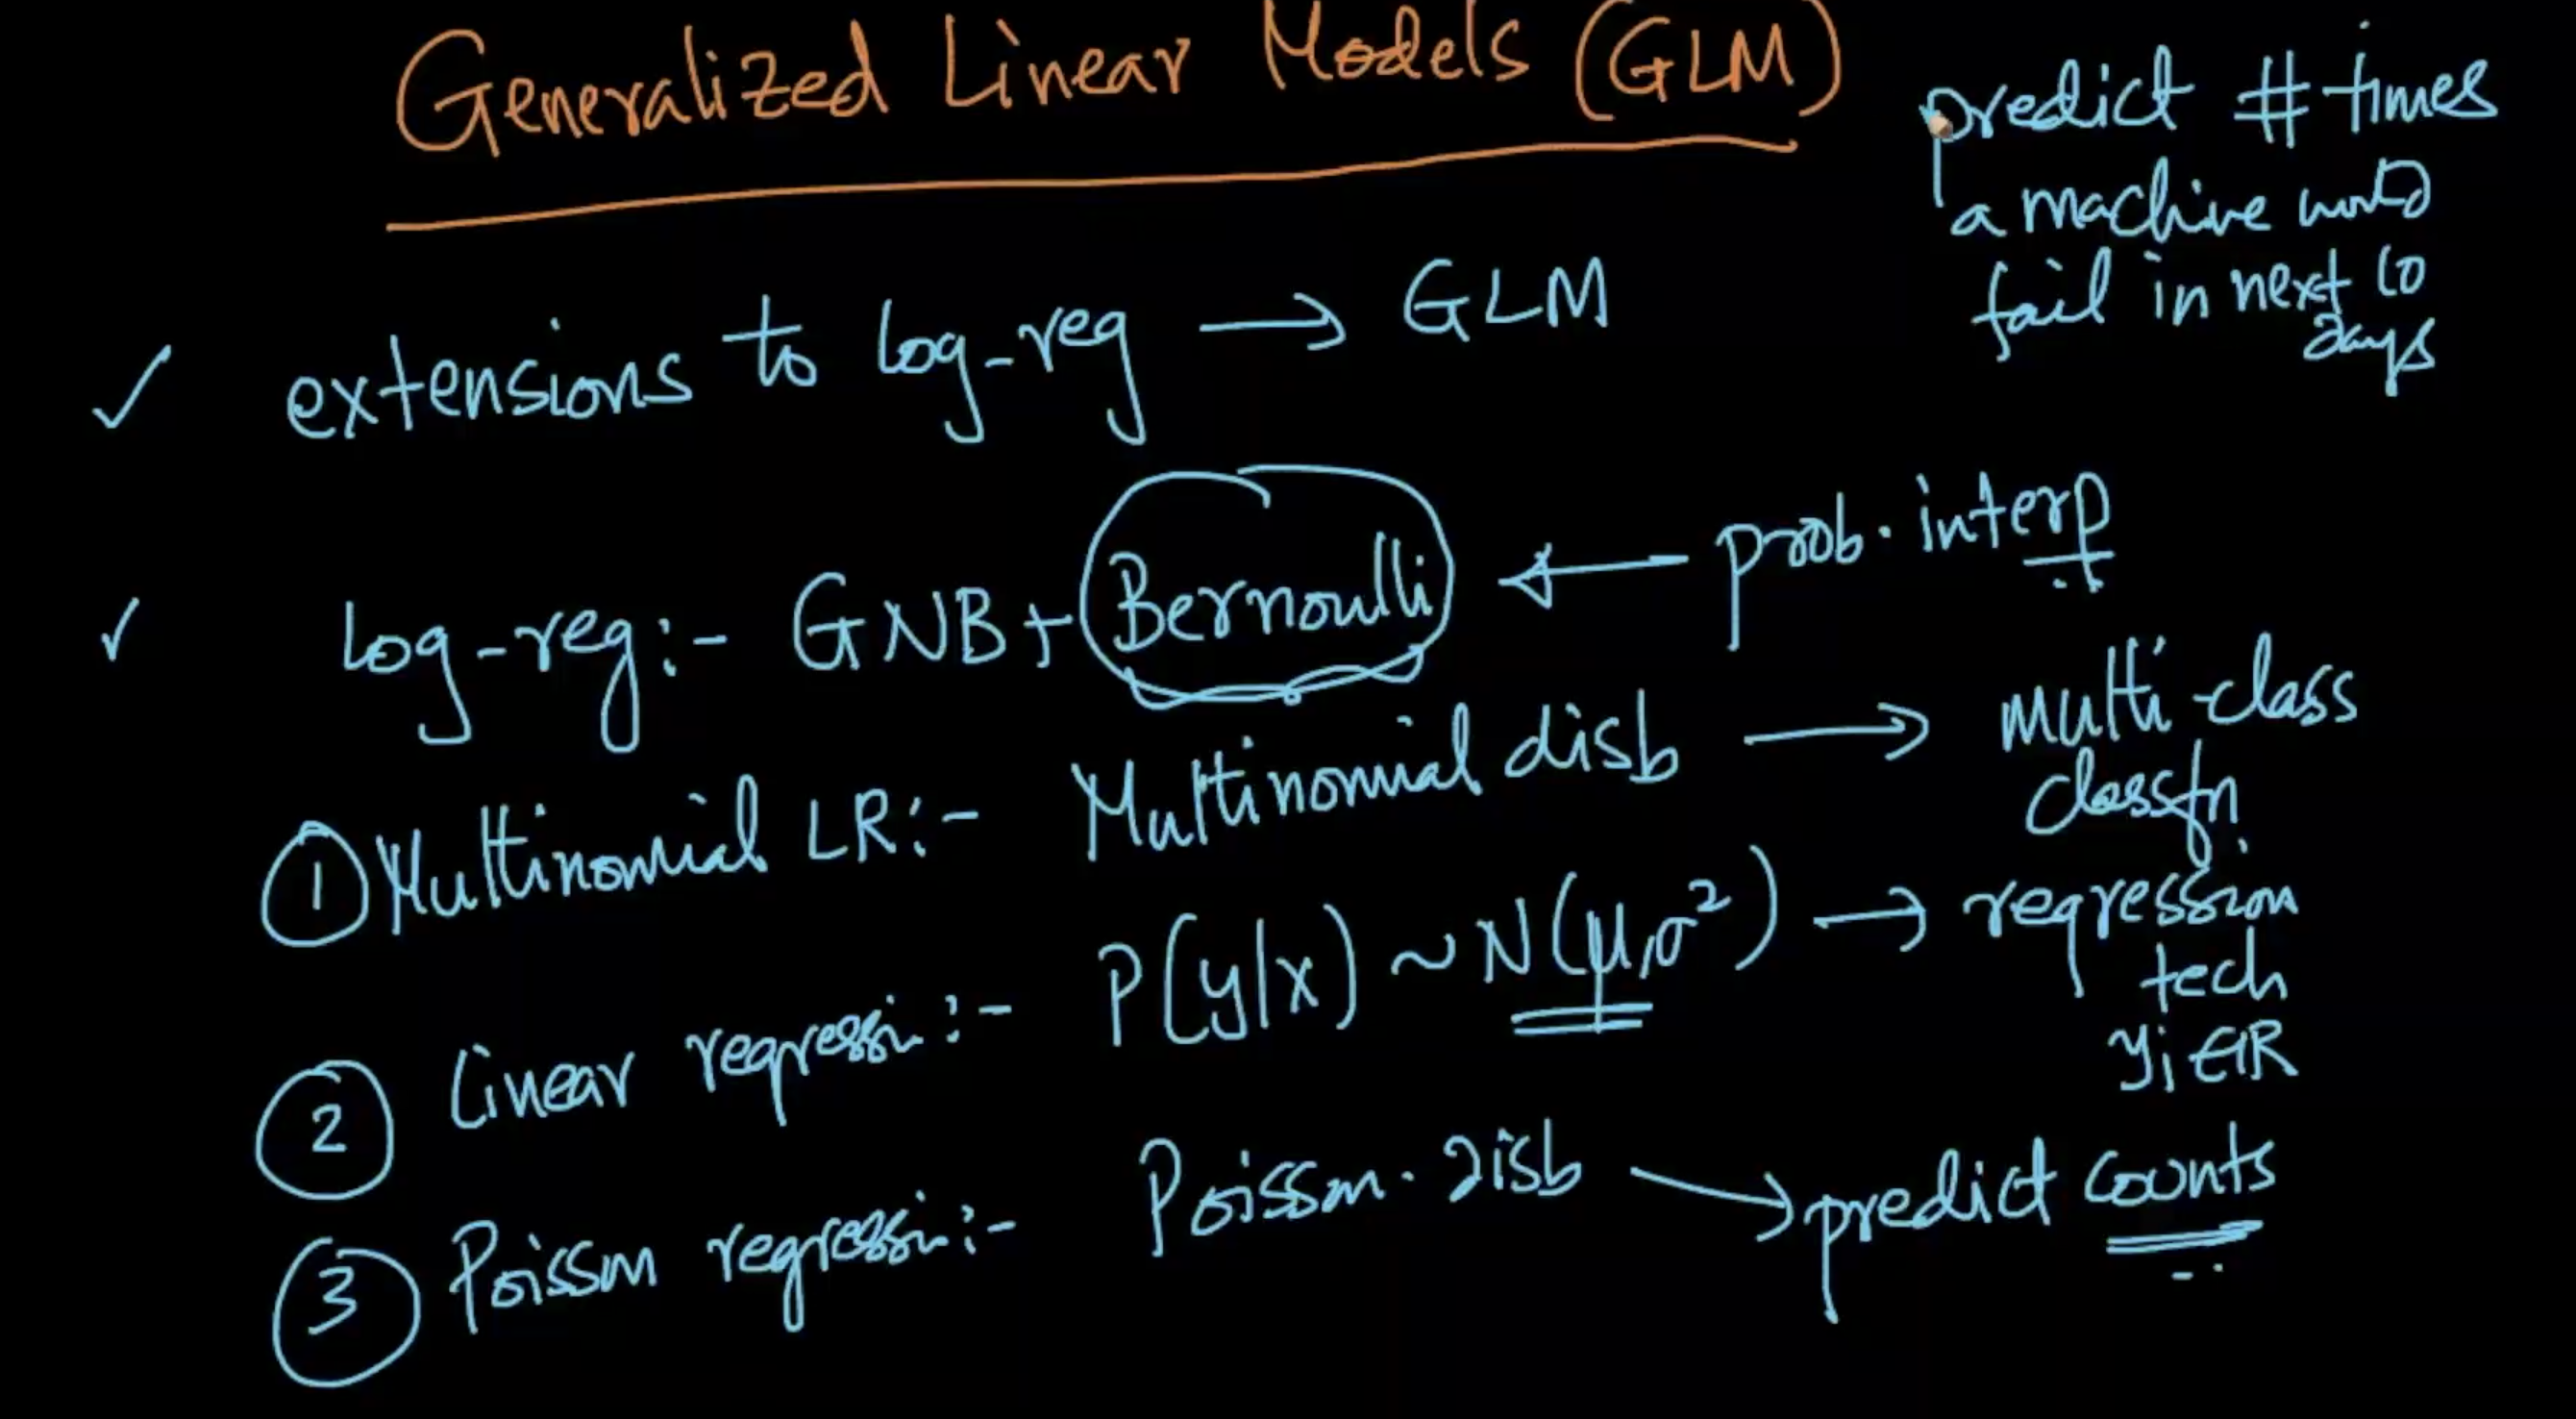 Generalized Linear Models (GLM)
predict # times
a machine would
fail in next 10
days
✓ extensions to log-reg → GLM
✓ log-reg:- GNB + Bernoulli ← prob. interp
① Multinomial LR:- Multinomial disb → multi-class
classfn
② Linear regressn:- P(y|x) ~ N(μ,σ²) → regression
tech
yi ∈ IR
③ Poisson regressn:- Poisson. disb → predict counts